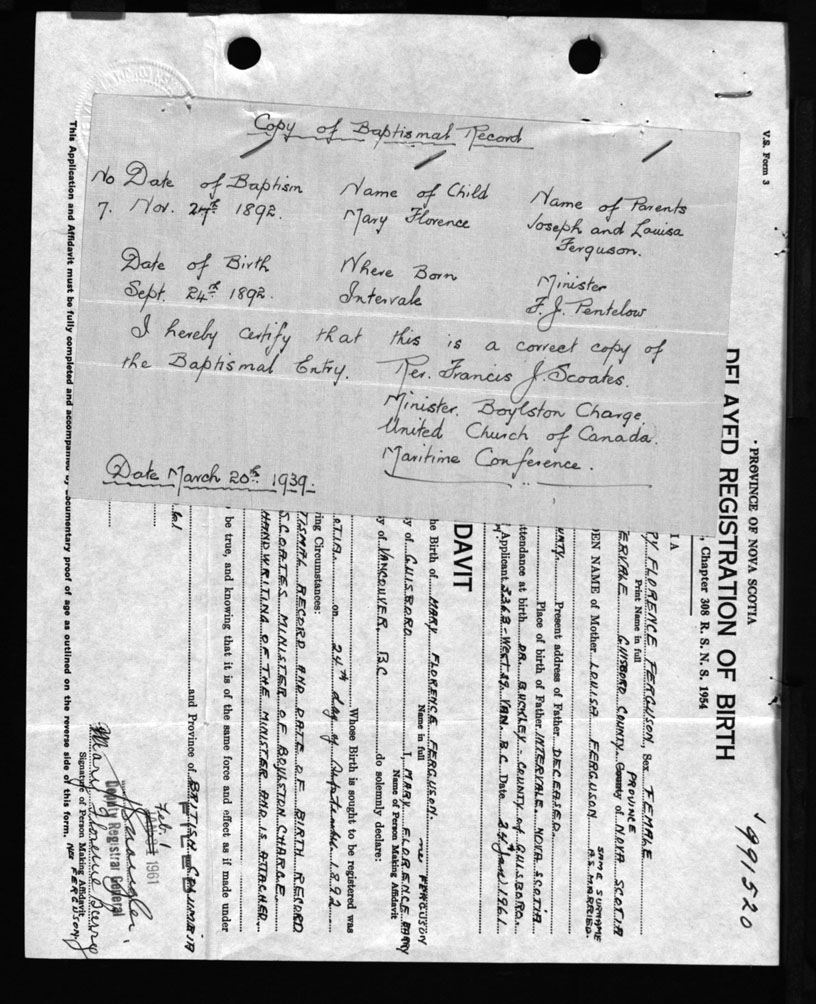 Copy of Baptismal Record
No Date of Baptism Name of Child Name of Parents
7. Nov. 27th 1892. Mary Florence Joseph and Louisa
Ferguson.
Date of Birth Where Born Minister
Sept. 24th 1892. Intervale F. J. Pentelow
I hereby certify that this is a correct copy of
the Baptismal Entry. Rev. Francis J. Scoates.
Minister. Boylston Charge
United Church of Canada.
Maritime Conference.
Date March 20th 1939.
V.S. Form 3
'991520
PROVINCE OF NOVA SCOTIA
DELAYED REGISTRATION OF BIRTH
, Chapter 308 R. S. N. S. 1954
RY FLORENCE FERGUSON, Sex FEMALE
Print Name in full
PROVINCE
ERVALE GUISBORO COUNTY County of NOVA SCOTIA
SAME SURNAME
AS MARRIED.
DEN NAME of Mother LOUISA FERGUSON
UNTY. Present address of Father DECEASED.
Place of birth of Father INTERVALE NOVA SCOTIA
ttendance at birth DR. BUCKLEY - COUNTY of GUISBORO.
Applicant 3368 - WEST 29. VAN. B.C. Date 24th Jan 1961
DAVIT
he Birth of MARY FLORENCE FERGUSON.
Name in full
nee FERGUSON
y of GUISBORO I, MARY FLORENCE BARRY
Name of Person Making Affidavit
y of VANCOUVER, B.C do solemnly declare:
Whose Birth is sought to be registered was
OTIA. on 24th day of September 1892.
ing Circumstances:
TISMAL RECORD AND DATE OF BIRTH RECORD
SCOATES MINISTER OF BOYLSTON CHARGE.
HANDWRITING OF THE MINISTER AND IS ATTACHED.
be true, and knowing that it is of the same force and effect as if made under
and Province of BRITISH COLUMBIA
Feb. 1
1961
Deputy Registrar General
Mary Florence Barry
Signature of Person Making Affidavit.
NEE FERGUSON
This Application and Affidavit must be fully completed and accompanied by documentary proof of age as outlined on the reverse side of this form.